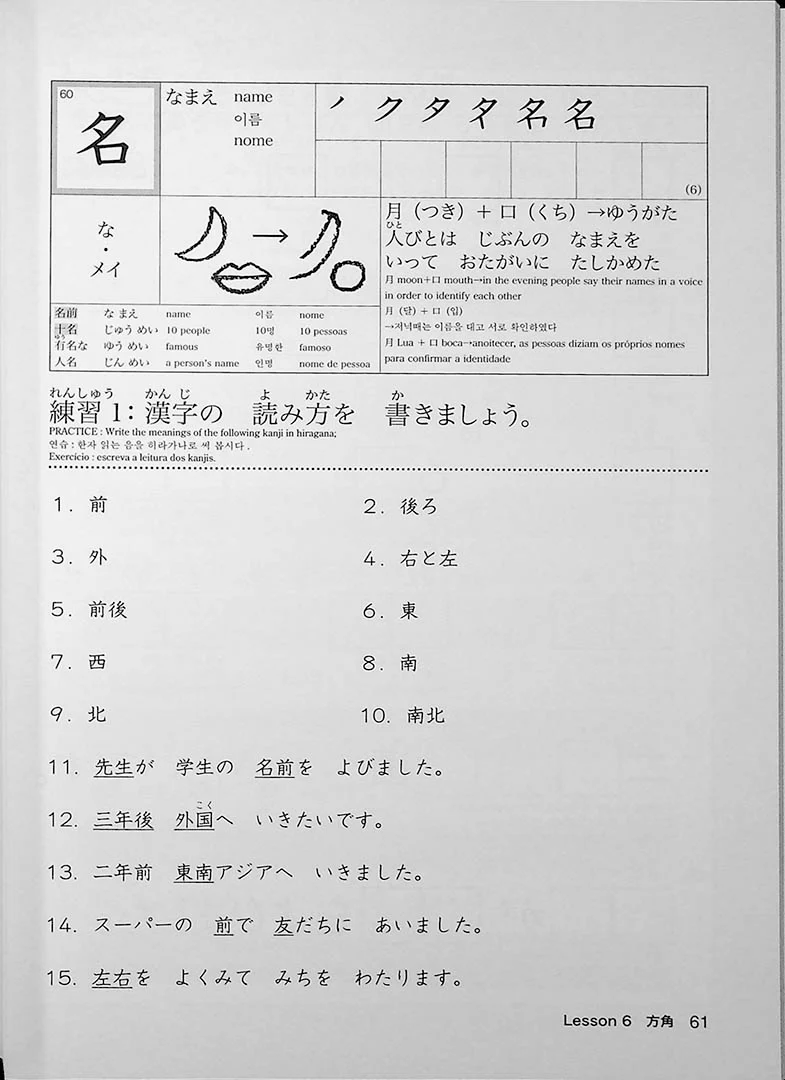 60
名
なまえ name
이름
nome
ノ ク タ タ 名 名
(6)
な
・
メイ
月（つき）＋口（くち）→ゆうがた
ひと
人びとは　じぶんの　なまえを
いって　おたがいに　たしかめた
月 moon＋口 mouth→in the evening people say their names in a voice
in order to identify each other
月 (달) + 口 (입)
→저녁때는 이름을 대고 서로 확인하였다
月 Lua + 口 boca→anoitecer, as pessoas diziam os próprios nomes
para confirmar a identidade
名前 な まえ name 이름 nome
十名 じゅう めい 10 people 10명 10 pessoas
ゆう
有名な ゆう めい famous 유명한 famoso
人名 じん めい a person's name 인명 nome de pessoa
れんしゅう　かん じ　よ　かた　か
練習 1：漢字の　読み方を　書きましょう。
PRACTICE : Write the meanings of the following kanji in hiragana;
연습 : 한자 읽는 음을 히라가나로 써 봅시다 .
Exercício : escreva a leitura dos kanjis.
1. 前
2. 後ろ
3. 外
4. 右と左
5. 前後
6. 東
7. 西
8. 南
9. 北
10. 南北
11. 先生が　学生の　名前を　よびました。
こく
12. 三年後　外国へ　いきたいです。
13. 二年前　東南アジアへ　いきました。
14. スーパーの　前で　友だちに　あいました。
15. 左右を　よくみて　みちを　わたります。
Lesson 6　方角　61